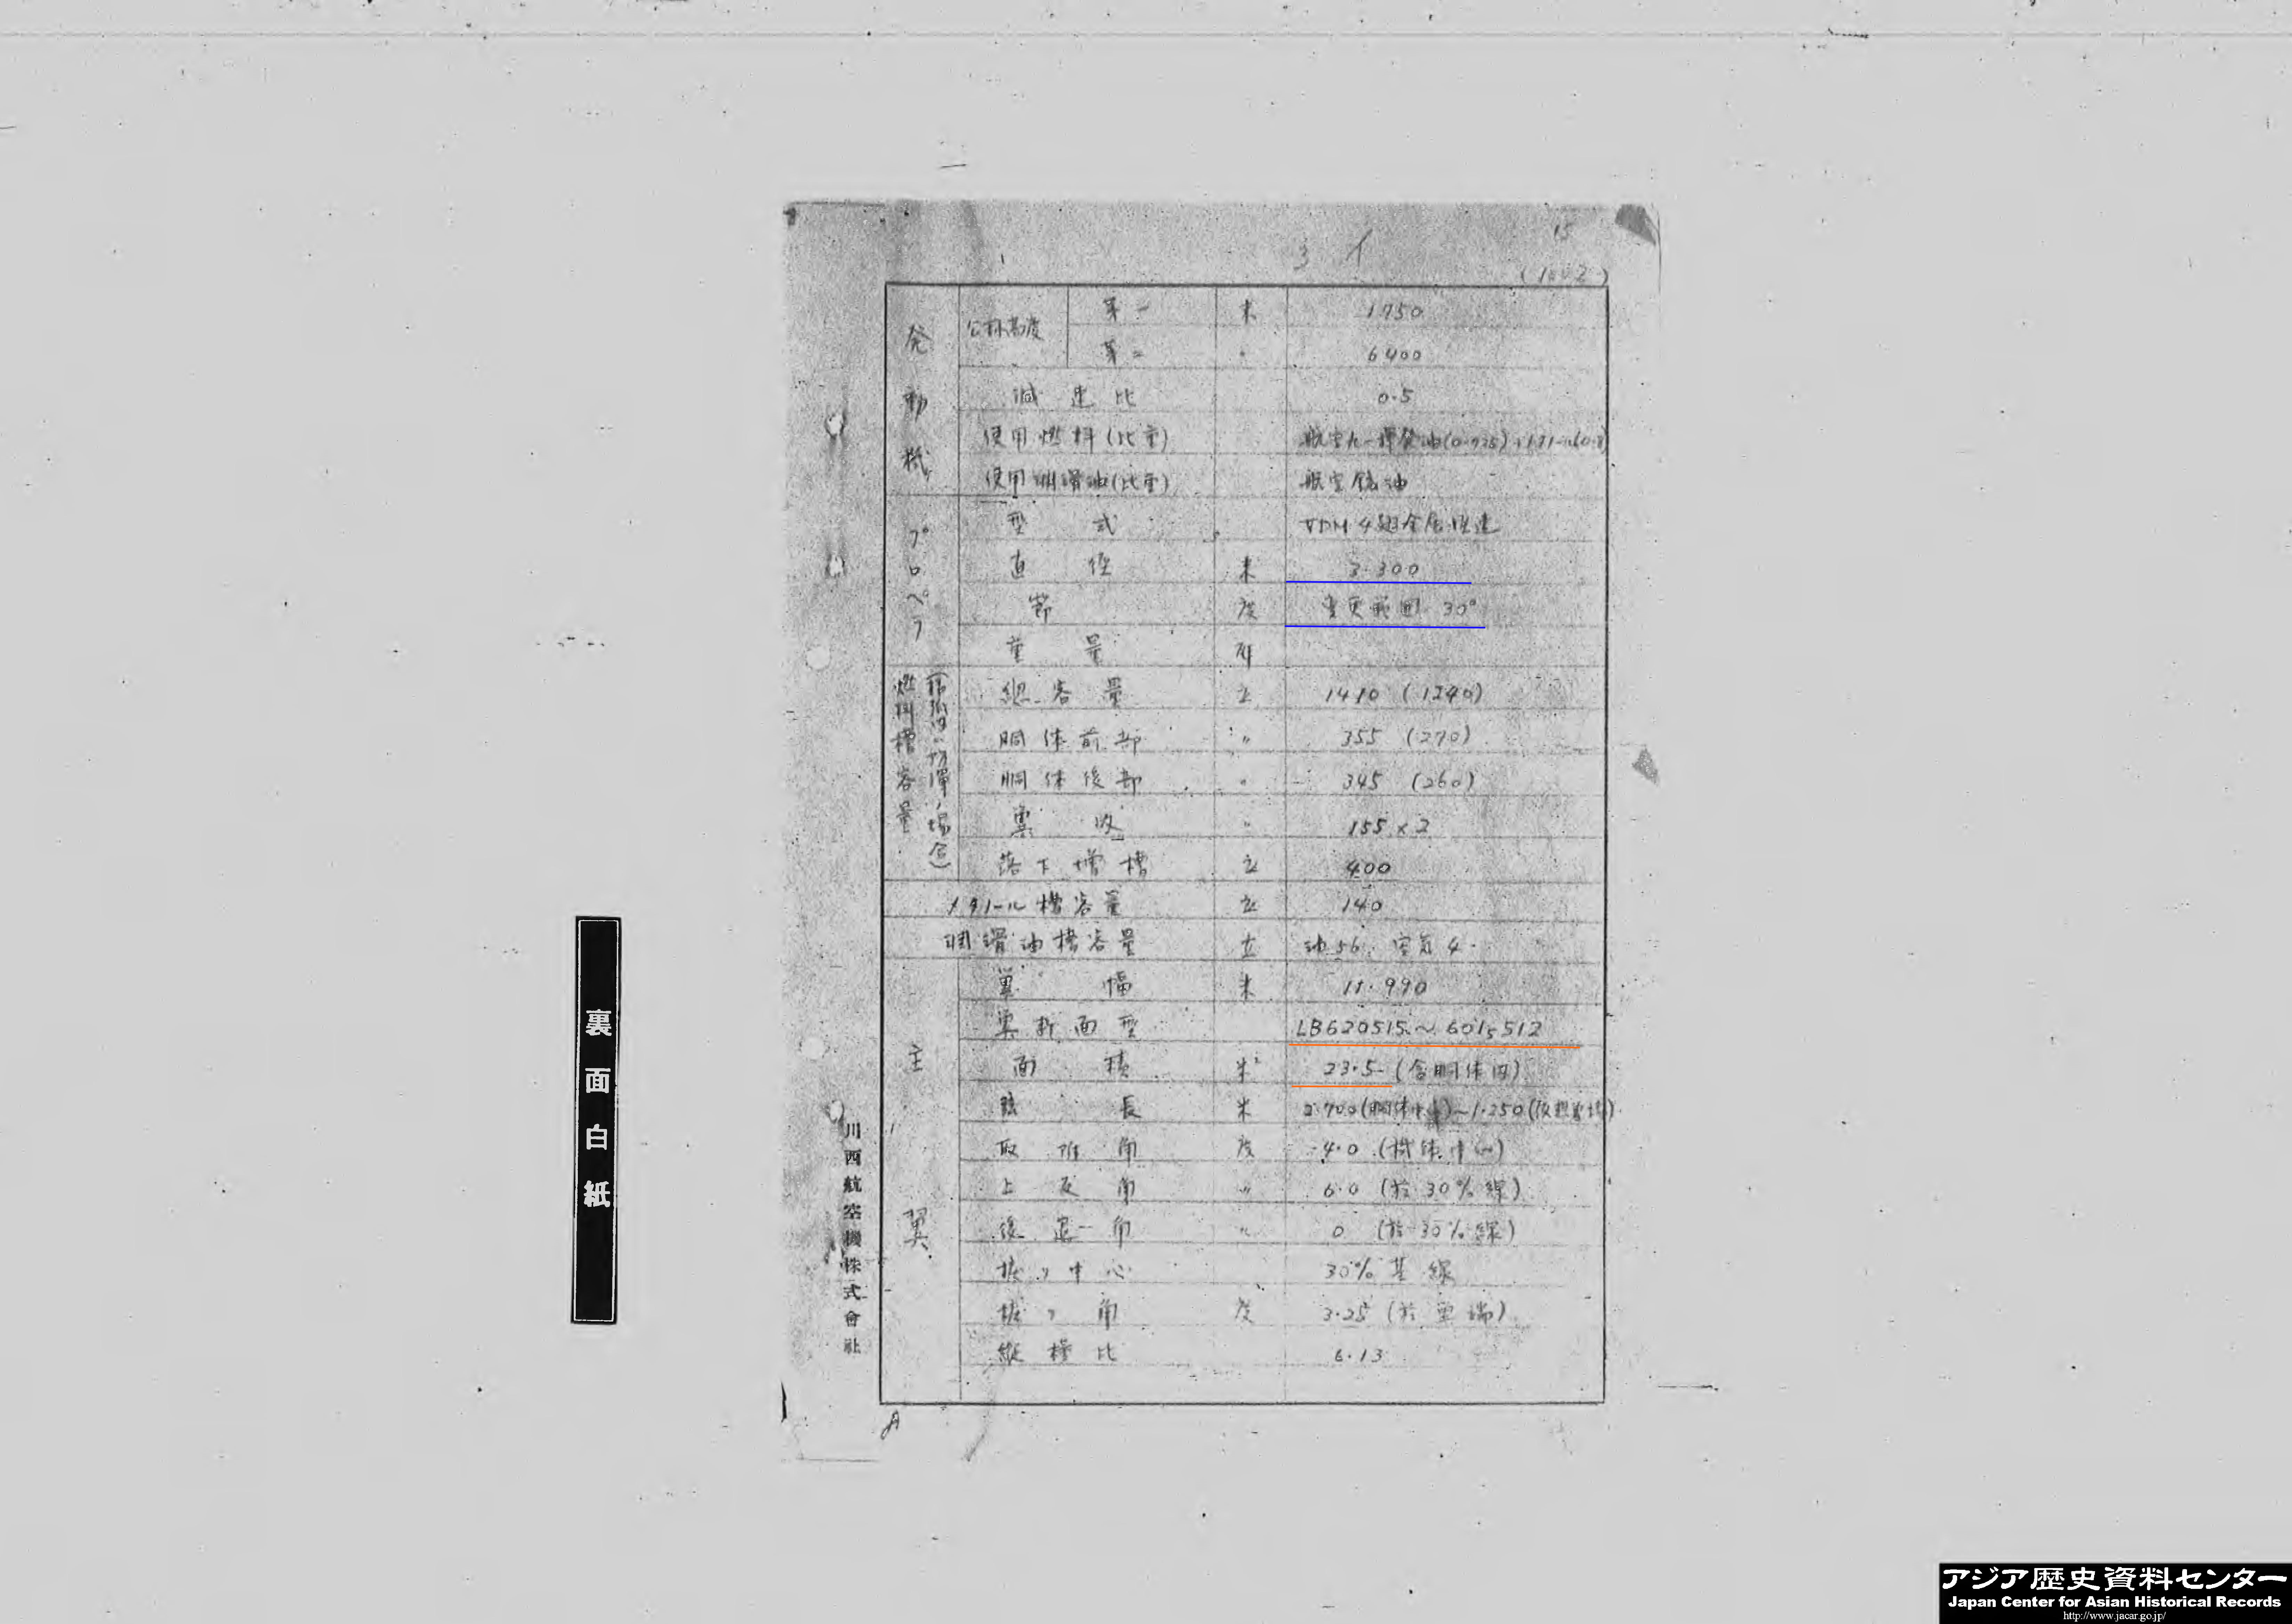 15
31
(1002)
発動機 公称高度 第一 米 1750
第二 〃 6400
減速比 0.5
使用燃料(比重) 航空九一揮発油(0.725)
使用潤滑油(比重) 航空鉱油
プロペラ 型式 VDM 4翅金属恒速
直径 米 3.300
節 度 変更範囲 30°
重量 瓩
燃料槽容量 (括弧内ハ防弾ノ場合) 総容量 立 1410 (1240)
胴体前部 〃 355 (270)
胴体後部 〃 345 (260)
翼内 〃 155×2
落下増槽 立 400
メタノール槽容量 立 140
潤滑油槽容量 立 油56. 空気4.
主翼 翼幅 米 11.990
翼断面型 LB620515~601₅512
面積 米² 23.5 (含胴体内)
弦長 米 2.700(胴体中心)~1.250(仮想翼端)
取附角 度 4.0 (機体中心)
上反角 〃 6.0 (於30%線)
後退角 〃 0 (於30%線)
捩リ中心 30%基線
捩リ角 度 3.25 (於翼端)
縦横比 6.13
川西航空機株式會社
裏面白紙
アジア歴史資料センター
Japan Center for Asian Historical Records
http://www.jacar.go.jp/